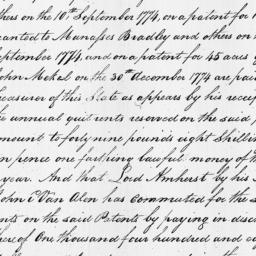 thers on the 10th September 1774, on a patent for 1
ranted to Manasses Bradley and others on
eptember 1774, and on a patent for 45 acres
John Mekel on the 30th December 1774 are pai
reasurer of this State as appears by his recei
te annual quit rents reserved on the said
mount to forty nine pounds eight Shillin
n pence one farthing lawful money of th
year. And that Lord Amherst by his
John C Van Alen has commuted for the
ents on the said Patents by paying in disc
her of One thousand four hundred and ei